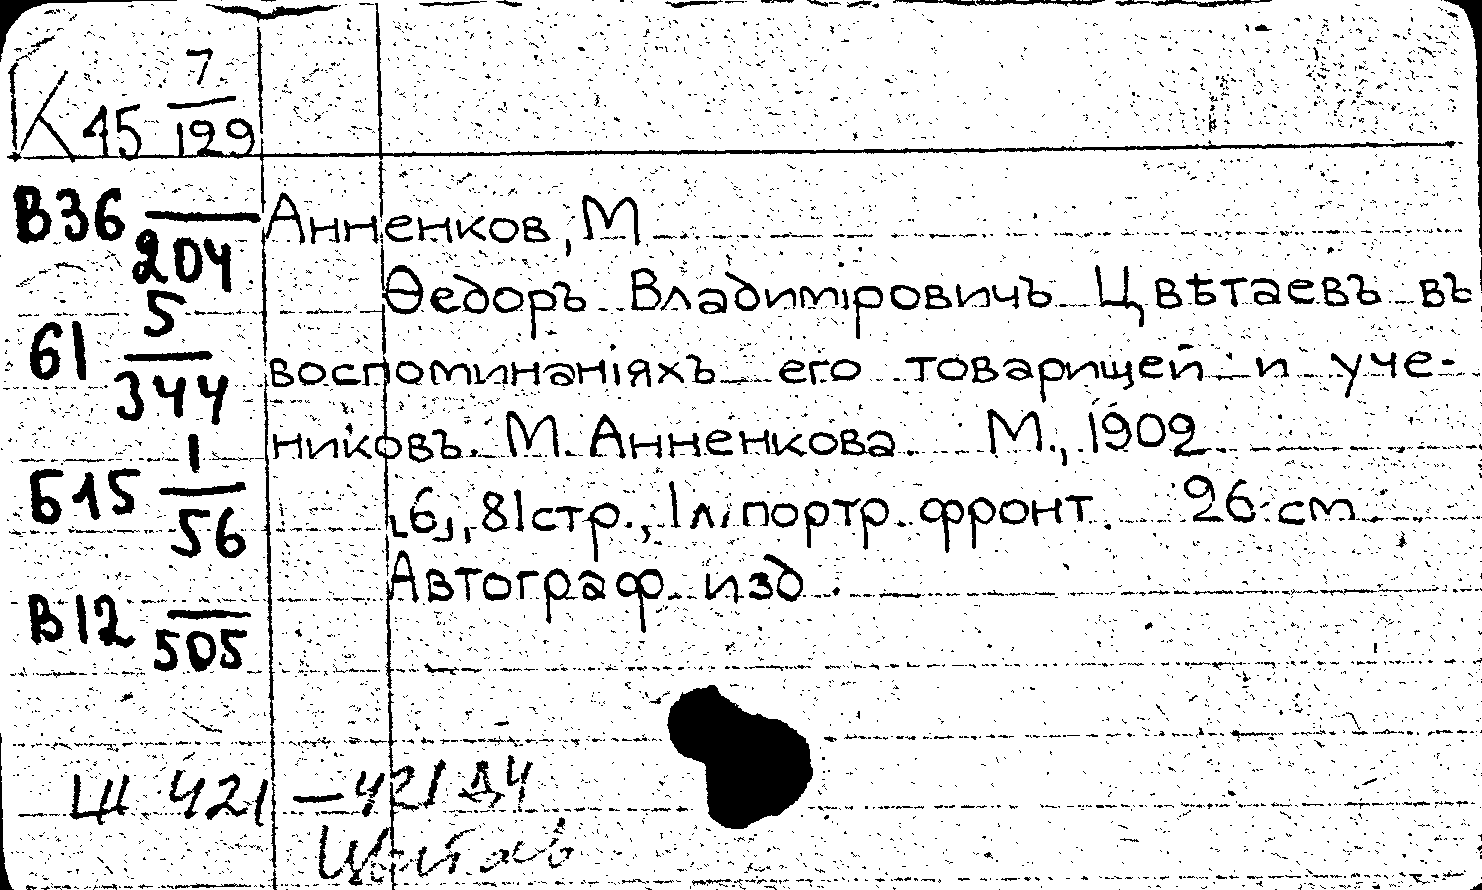 К 45 7/129
В36 —/204
Анненков, М
Ѳедоръ Владимiровичъ Цвѣтаевъ въ
61 5/344
воспоминанiяхъ его товарищей и уче-
никовъ. М. Анненкова. М., 1902
Б15 1/56
[6], 81стр., 1л. портр. фронт. 26 см.
Автограф изд.
В12 —/505
Ш 421 — 421 Д4
Цветаев